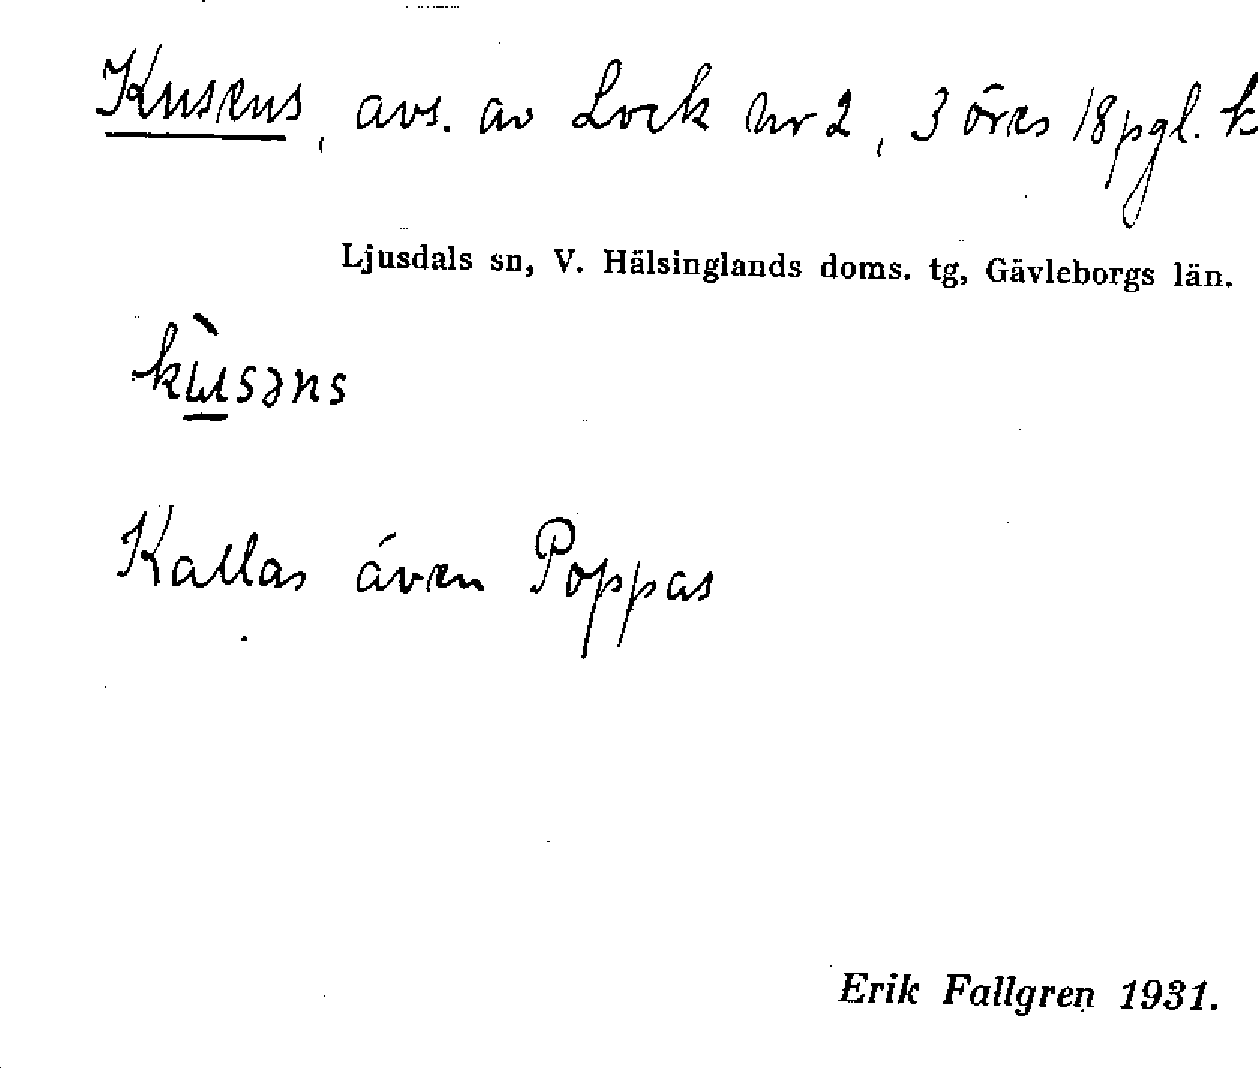 Kusens, avs. av Lock nr 2, 3 öres 18 pgl. k
Ljusdals sn, V. Hälsinglands doms. tg, Gävleborgs län.
kɯ̀səns
Kallas även Poppas
Erik Fallgren 1931.